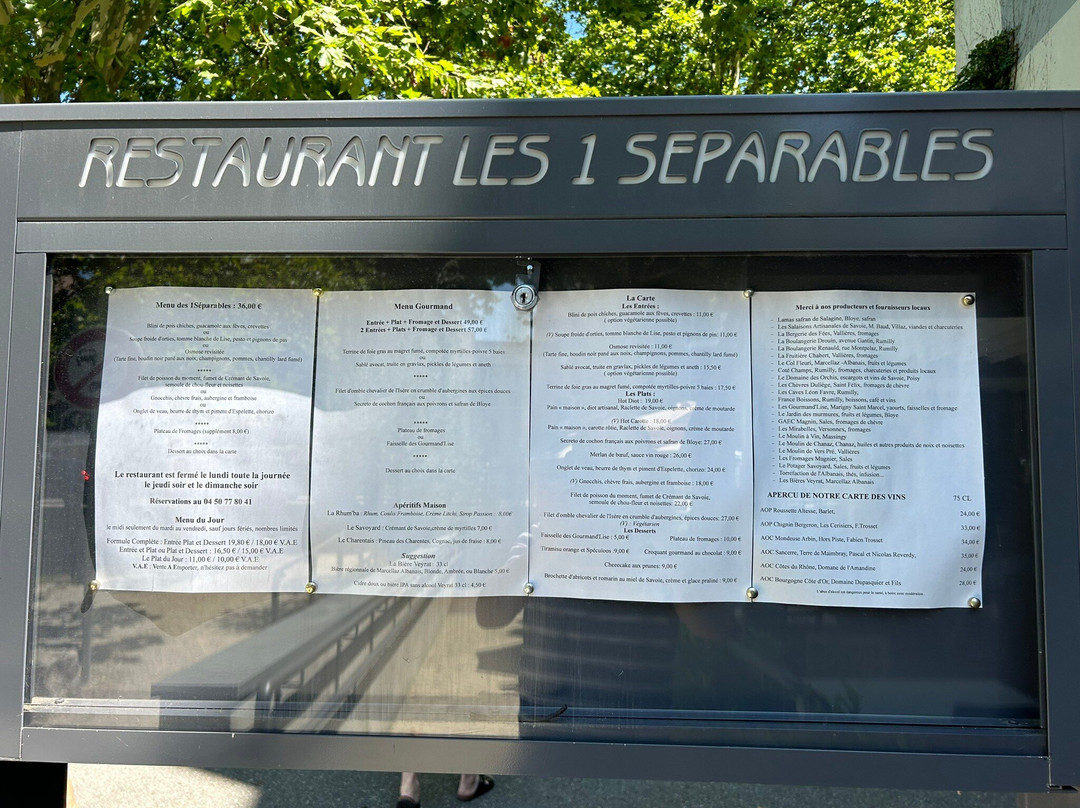 RESTAURANT LES 1 SEPARABLES
Menu des 1Séparables : 36,00 €
Blini de pois chiches, guacamole aux fèves, crevettes
ou
Soupe froide d'orties, tomme blanche de Lise, pesto et pignons de pin
ou
Osmose revisitée
(Tarte fine, boudin noir paré aux noix, champignons, pommes, chantilly lard fumé)
*****
Filet de poisson du moment, fumet de Crémant de Savoie,
semoule de chou-fleur et noisettes
ou
Gnocchis, chèvre frais, aubergine et framboise
ou
Onglet de veau, beurre de thym et piment d'Espelette, chorizo
*****
Plateau de Fromages (supplément 8,00 €)
*****
Dessert au choix dans la carte
Le restaurant est fermé le lundi toute la journée
le jeudi soir et le dimanche soir
Réservations au 04 50 77 80 41
Menu du Jour
le midi seulement du mardi au vendredi, sauf jours fériés, nombres limités
Formule Complète : Entrée Plat et Dessert 19,80 € / 18,00 € V.A.E
Entrée et Plat ou Plat et Dessert : 16,50 € / 15,00 € V.A.E
Le Plat du Jour : 11,00 € / 10,00 € V.A.E
V.A.E : Vente A Emporter, n'hésitez pas à demander
Menu Gourmand
Entrée + Plat + Fromage et Dessert 49,00 €
2 Entrées + Plats + Fromage et Dessert 57,00 €
Terrine de foie gras au magret fumé, compotée myrtilles-poivre 5 baies
ou
Sablé avocat, truite en gravlax, pickles de légumes et aneth
*****
Filet d'omble chevalier de l'Isère en crumble d'aubergines aux épices douces
ou
Secreto de cochon français aux poivrons et safran de Bloye
*****
Plateau de fromages
ou
Faisselle des Gourmand'Lise
*****
Dessert au choix dans la carte
Apéritifs Maison
La Rhum'ba : Rhum, Coulis Framboise, Crème Litchi, Sirop Passion : 8,00€
Le Savoyard : Crémant de Savoie,crème de myrtilles 7,00 €
Le Charentais : Pineau des Charentes, Cognac, jus de fraise : 8,00 €
Suggestion
La Bière Veyrat : 33 cl
Bière régionale de Marcellaz Albanais, Blonde, Ambrée, ou Blanche 5,00 €
Cidre doux ou bière IPA sans alcool Veyrat 33 cl : 4,50 €
La Carte
Les Entrées :
Blini de pois chiches, guacamole aux fèves, crevettes : 11,00 €
( option végétarienne possible)
(V) Soupe froide d'orties, tomme blanche de Lise, pesto et pignons de pin: 11,00 €
Osmose revisitée : 11,00 €
(Tarte fine, boudin noir paré aux noix, champignons, pommes, chantilly lard fumé)
Sablé avocat, truite en gravlax, pickles de légumes et aneth : 15,50 €
(option végétarienne possible)
Terrine de foie gras au magret fumé, compotée myrtilles-poivre 5 baies : 17,50 €
Les Plats :
Hot Diot : 19,00 €
Pain « maison », diot artisanal, Raclette de Savoie, oignons, crème de moutarde
(V) Hot Carotte : 18,00 €
Pain « maison », carotte rôtie, Raclette de Savoie, oignons, crème de moutarde
Secreto de cochon français aux poivrons et safran de Bloye: 27,00 €
Merlan de bœuf, sauce vin rouge : 26,00 €
Onglet de veau, beurre de thym et piment d'Espelette, chorizo: 24,00 €
(V) Gnocchis, chèvre frais, aubergine et framboise : 18,00 €
Filet de poisson du moment, fumet de Crémant de Savoie,
semoule de chou-fleur et noisettes: 22,00 €
Filet d'omble chevalier de l'Isère en crumble d'aubergines, épices douces: 27,00 €
(V) : Végétarien
Les Desserts
Faisselle des Gourmand'Lise : 5,00 € Plateau de fromages : 10,00 €
Tiramisu orange et Spéculoos : 9,00 € Croquant gourmand au chocolat : 9,00 €
Cheesecake aux prunes: 9,00 €
Brochette d'abricots et romarin au miel de Savoie, crème et glace praliné : 9,00 €
Merci à nos producteurs et fournisseurs locaux
- Lamas safran de Salagine, Bloye, safran
- Les Salaisons Artisanales de Savoie, M. Baud, Villaz, viandes et charcuteries
- La Bergerie des Fées, Vallières, fromages
- La Boulangerie Drouin, avenue Gantin, Rumilly
- La Boulangerie Renauld, rue Montpelaz, Rumilly
- La Fruitière Chabert, Vallières, fromages
- Le Col Fleuri, Marcellaz -Albanais, fruits et légumes
- Coté Champs, Rumilly, fromages, charcuteries et produits locaux
- Le Domaine des Orchis, escargots et vins de Savoie, Poisy
- Les Chèvres Duliège, Saint Félix, fromages de chèvre
- Les Caves Léon Favre, Rumilly,
- France Boissons, Rumilly, boissons, café et vins
- Les Gourmand'Lise, Marigny Saint Marcel, yaourts, faisselles et fromage
- Le Jardin des murmures, fruits et légumes, Bloye
- GAEC Magnin, Sales, fromages de chèvre
- Les Mirabelles, Versonnex, fromages
- Le Moulin à Vin, Massingy
- Le Moulin de Chanaz, Chanaz, huiles et autres produits de noix et noisettes
- Le Moulin de Vers Pré, Vallières
- Les Fromages Magnier, Sales
- Le Potager Savoyard, Sales, fruits et légumes
- Torréfaction de l'Albanais, thés, infusion...
- Les Bières Veyrat, Marcellaz Albanais
APERCU DE NOTRE CARTE DES VINS 75 CL
AOP Roussette Altesse, Barlet, 24,00€
AOP Chignin Bergeron, Les Cerisiers, F.Trosset 33,00 €
AOC Mondeuse Arbin, Hors Piste, Fabien Trosset 34,00 €
AOC Sancerre, Terre de Maimbray, Pascal et Nicolas Reverdy, 35,00 €
AOC Côtes du Rhône, Domane de l'Amandine 24,00 €
AOC Bourgogne Côte d'Or, Domaine Dupasquier et Fils 28,00 €
L'abus d'alcool est dangereux pour la santé, à boire avec modération.